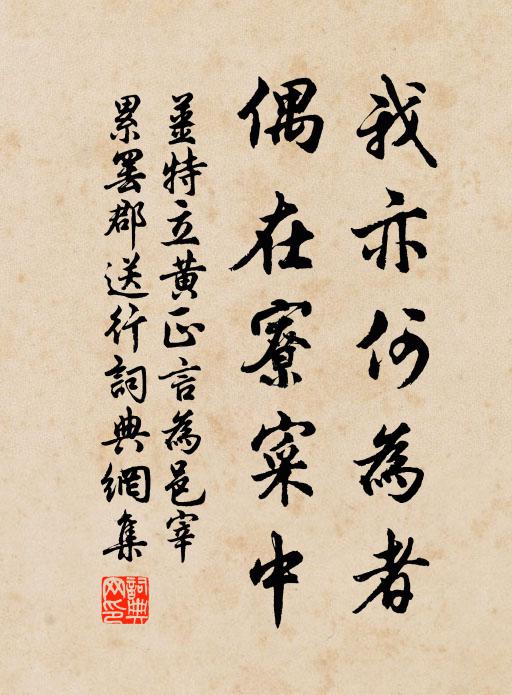 我亦何為者
偶在寮寀中
姜特立黄正言為邑宰
累罢郡送行詞典網集
詞典網印